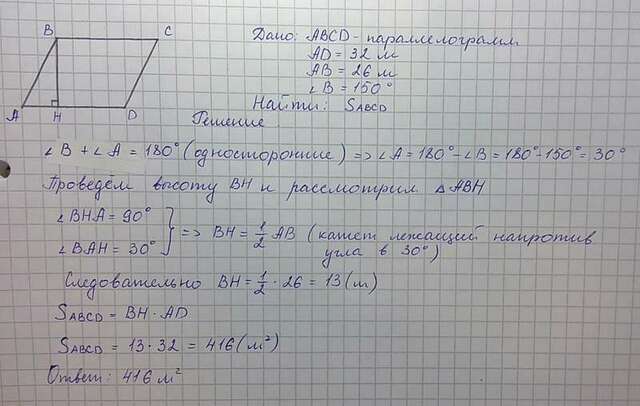 B C
A H D
Дано: ABCD - параллелограмм
AD = 32 м
AB = 26 м
∠B = 150°
Найти: SABCD
Решение
∠B + ∠A = 180° (односторонние) => ∠A = 180° - ∠B = 180° - 150° = 30°
Проведём высоту BH и рассмотрим △ABH
∠BHA = 90°
∠BAH = 30° } => BH = 1/2 AB (катет лежащий напротив
угла в 30°)
Следовательно BH = 1/2 · 26 = 13 (м)
SABCD = BH · AD
SABCD = 13 · 32 = 416 (м²)
Ответ: 416 м²